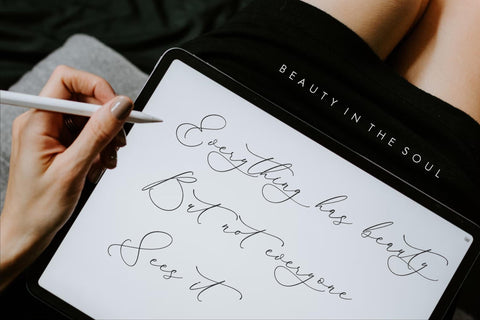 BEAUTY IN THE SOUL
Everything has beauty
But not everyone
Sees it